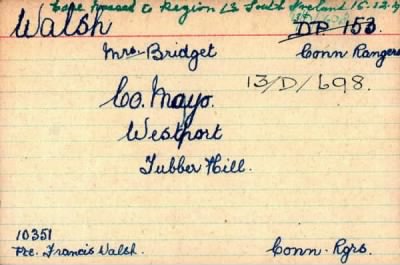 Case passed to Region 13 South Ireland 16.12.
Walsh
DP 153
Mrs Bridget Conn Rangers
13/D/698.
Co. Mayo.
Westport
Tubber Hill.
10351
Pte. Francis Walsh. Conn. Rgrs.